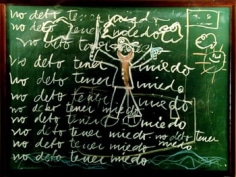 no debo tener miedo
no debo tener miedo
no debo tener
no debo tener miedo
no debo tener miedo
no debo tener miedo
no debo tener miedo
no debo tener miedo
no debo tener miedo
no debo tener miedo no debo tener
no debo tener miedo miedo